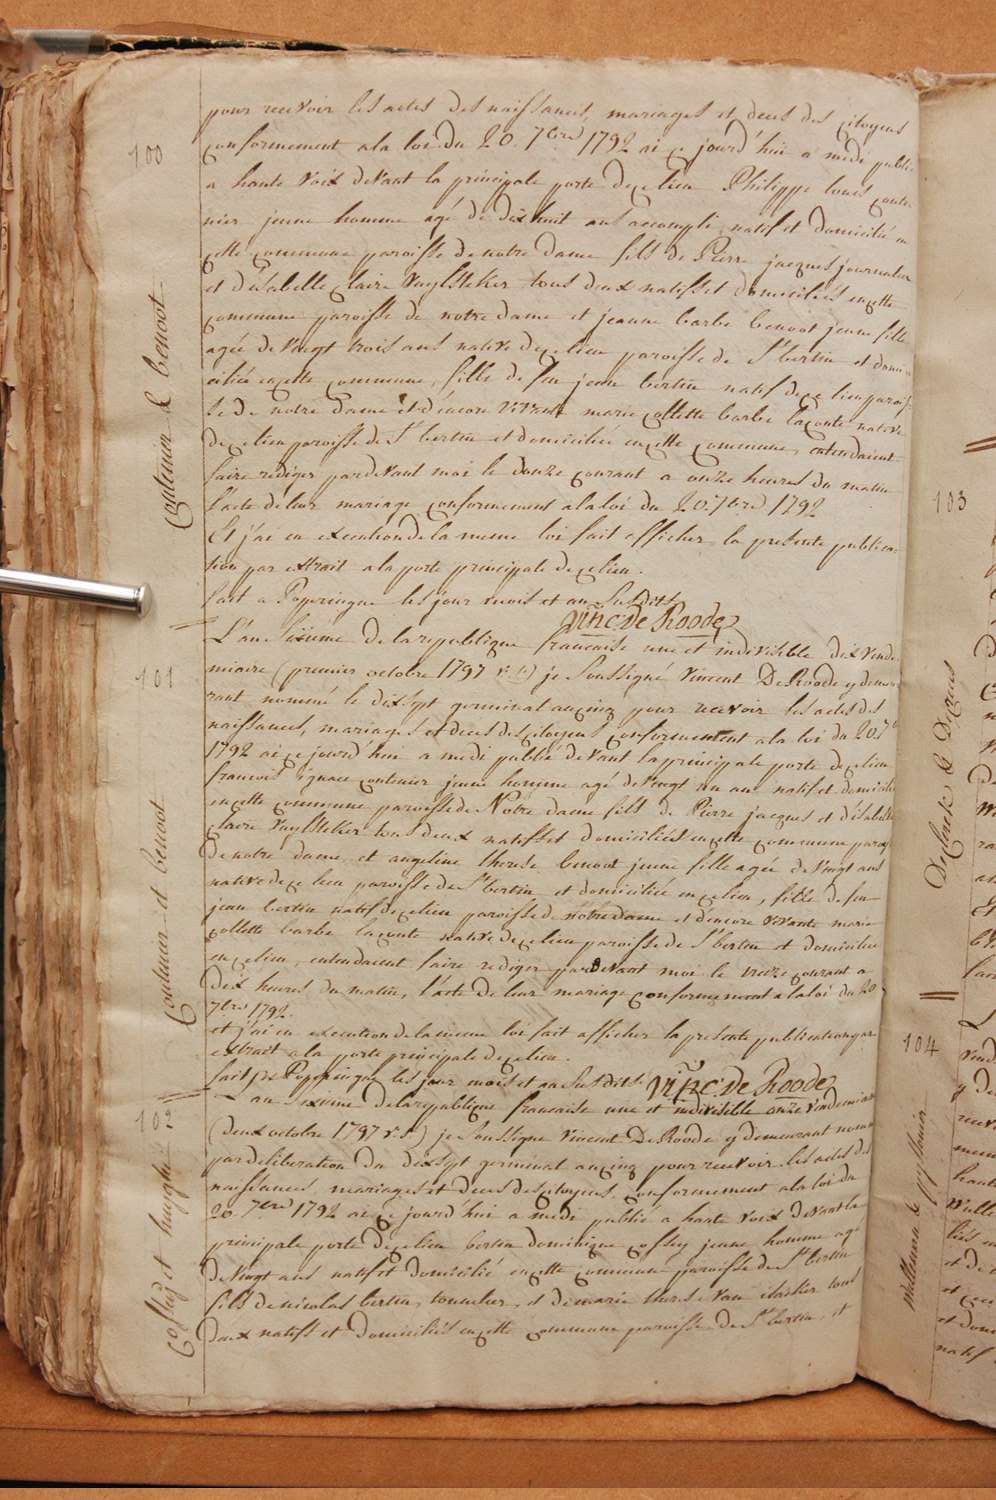 100
Coutenier & benoot
pour recevoir les actes des naissances, mariages et deces des citoyens
conformement a la loi du 20. 7bre 1792 ai ce jourd'hui a midi publié
a haute voix devant la principale porte de ce lieu Philippe louis coute
nier jeune homme agé de dix huit ans accompli natif et domicilié en
cette commune paroisse de notre dame fils de Pierre jacques journalier
et d'isabelle Claire Vuylsteker tous deux natifs et domiciliés en cette
commune paroisse de notre dame et jeanne barbe benoot jeune fille
agée de vingt trois ans native de ce lieu paroisse de St bertin et domi
ciliée en cette commune, fille de feu jean bertin natif de ce lieu parois
se de notre dame et d'encore vivante marie collette barbe laconte native
de ce lieu paroisse de St bertin et domiciliée en cette commune, entendaient
faire rediger pardevant moi le douze courant a onze heures du matin
l'acte de leur mariage conformement a la loi du 20. 7bre 1792
Et j'ai en execution de la meme loi fait afficher la presente publica
tion par extrait a la porte principale de ce lieu.
fait a Poperingue les jour mois et an susdits
vinc De Roode
101
Coutenier et benoot
L'an sixième de la republique francaise une et indivisible dix vende
miaire (premier octobre 1797 v:s:) je soussigné Vincent De Roode y demeu
rant nommé le dix sept germinal an cinq pour recevoir les actes des
naissances, mariages et deces des citoyens conformement a la loi du 20. 7b
1792 ai ce jourd'hui a midi publié devant la principale porte de ce lieu
francois ignace coutenier jeune homme agé de vingt un ans natif et domicilié
en cette commune paroisse de Notre dame fils de Pierre jacques et d'isabelle
claire Vuylsteker tous deux natifs et domiciliés en cette commune parois
de notre dame, et angeline therese benoot jeune fille agée de vingt ans
native de ce lieu paroisse de St bertin et domiciliée en ce lieu, fille de feu
jean bertin natif de ce lieu paroisse de notre dame et d'encore vivante marie
collette barbe laconte native de ce lieu paroisse de St bertin et domiciliée
en ce lieu, entendaient faire rediger pardevant moi le treize courant a
dix heures du matin, l'acte de leur mariage conformement a la loi du 20
7bre 1792.
et j'ai en execution de la meme loi fait afficher la presente publication par
extrait a la porte principale de ce lieu.
fait a Poperingue les jour mois et an susdits
vinc De Roode
102
et huyghe
L'an sixieme de la republique francaise une et indivisible onze vendemiaire
(deux octobre 1797 v:s:) je soussigné Vincent De Roode y demeurant nommé
par deliberation du dix sept germinal an cinq pour recevoir les actes des
naissances, mariages et deces des citoyens, conformement a la loi du
20. 7bre 1792 ai ce jourd'hui a midi publié a haute voix devant la
principale porte de ce lieu bertin dominique jeune homme agé
de vingt ans natif et domicilié en cette commune paroisse de St bertin
fils de nicolas bertin, tonnelier, et de marie therese van tous
deux natifs et domiciliés en cette commune paroisse de St bertin, et
103
104